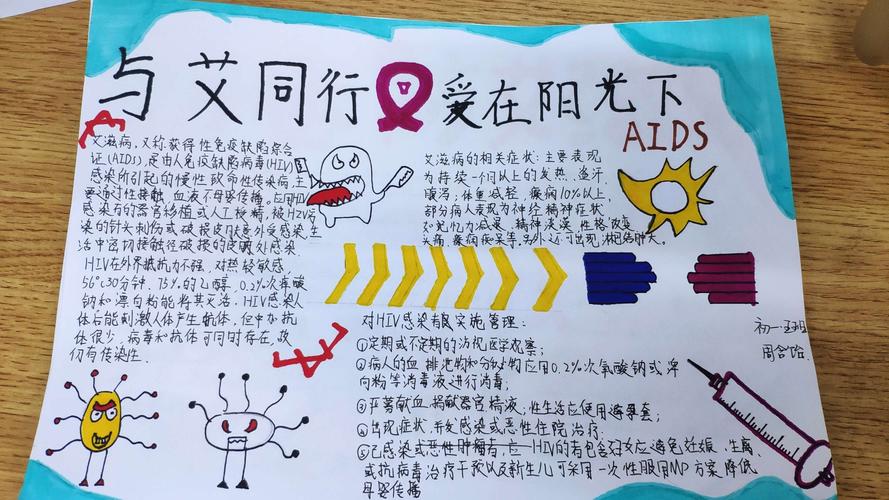 与艾同行 爱在阳光下
AIDS
艾滋病,又称获得性免疫缺陷综合
证(AIDS),是由人免疫缺陷病毒(HIV)
感染所引起的慢性致命性传染病,主
要通过性接触、血液、母婴传播。应用HIV
感染者的器官移植或人工授精,被HIV污
染的针头刺伤或破损皮肤意外受感染,生
活中密切接触经破损的皮肤处感染.
HIV在外界抵抗力不强,对热轻敏感,
56℃30分钟、75%的乙醇、0.2%次氯酸
钠和漂白粉能将其灭活.HIV感染人
体后能刺激人体产生抗体,但中和抗
体很少,病毒和抗体可同时存在,故
仍有传染性.
艾滋病的相关症状:主要表现
为持续一个月以上的发热、盗汗、
腹泻;体重减轻,10%以上,
部分病人表现为神经精神症状
如记忆力减退、精神淡漠、性格改变、
头痛、癫痫、痴呆等,另外还可出现淋巴结肿大。
对HIV感染者实施管理:
①定期或不定期的访视医学观察;
②病人的血、排泄物和分泌物应用0.2%次氯酸钠或漂
白粉等消毒液进行消毒;
③严禁献血、捐献器官、精液;性生活应使用避孕套;
④出现症状、并发感染或恶性住院治疗.
⑤已感染或恶性肿瘤者,应 HIV的者包含妇女应避免妊娠、生育、
或抗病毒治疗干预以及新生儿可采用一次性服用MP方案,降低
母婴传播
初一五班